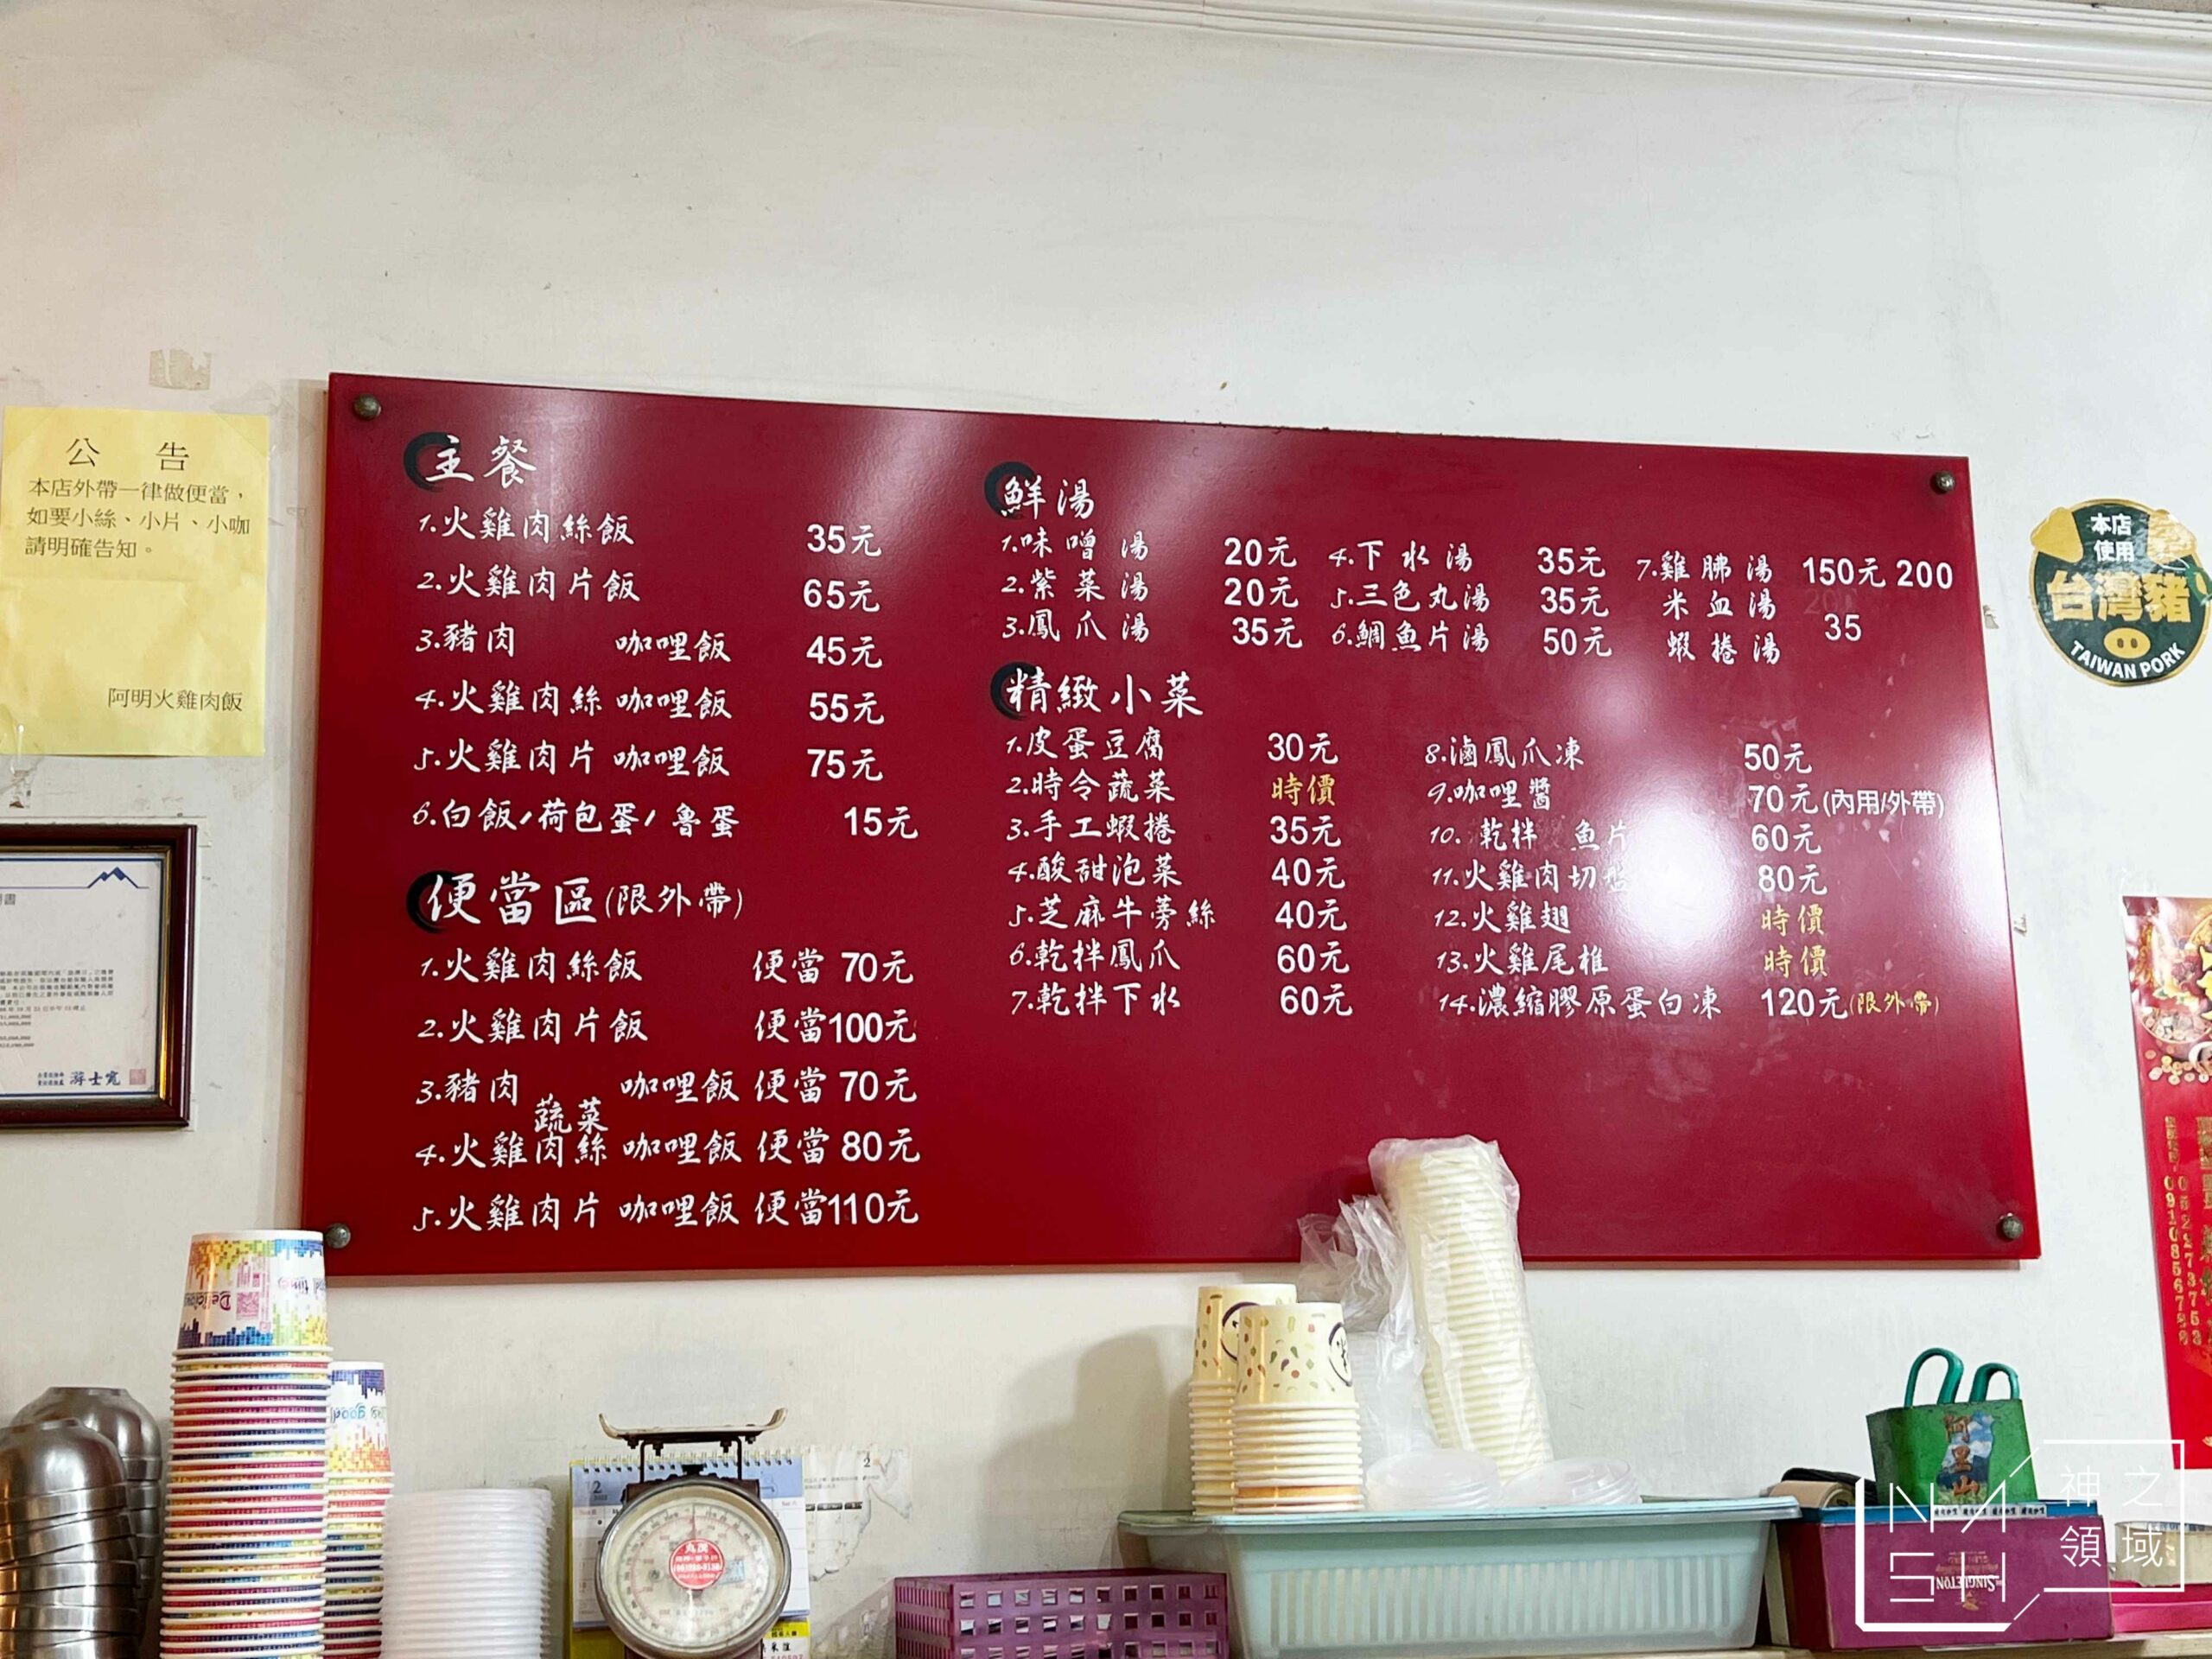 公 告
本店外帶一律做便當，
如要小絲、小片、小咖
請明確告知。
阿明火雞肉飯
主餐
1.火雞肉絲飯 35元
2.火雞肉片飯 65元
3.豬肉 咖哩飯 45元
4.火雞肉絲 咖哩飯 55元
5.火雞肉片 咖哩飯 75元
6.白飯/荷包蛋/魯蛋 15元
便當區(限外帶)
1.火雞肉絲飯 便當 70元
2.火雞肉片飯 便當100元
3.豬肉 咖哩飯 便當 70元
蔬菜
4.火雞肉絲 咖哩飯 便當 80元
5.火雞肉片 咖哩飯 便當110元
鮮湯
1.味噌湯 20元 4.下水湯 35元 7.雞胇湯 150元 200
2.紫菜湯 20元 5.三色丸湯 35元 米血湯
3.鳳爪湯 35元 6.鯛魚片湯 50元 蝦捲湯 35
精緻小菜
1.皮蛋豆腐 30元 8.滷鳳爪凍 50元
2.時令蔬菜 時價 9.咖哩醬 70元(內用/外帶)
3.手工蝦捲 35元 10. 乾拌 魚片 60元
4.酸甜泡菜 40元 11.火雞肉切盤 80元
5.芝麻牛蒡絲 40元 12.火雞翅 時價
6.乾拌鳳爪 60元 13.火雞尾椎 時價
7.乾拌下水 60元 14.濃縮膠原蛋白凍 120元(限外帶)
本店
使用
台灣豬
TAIWAN PORK
阿里山
SINGLETON
NASH
神之
領域